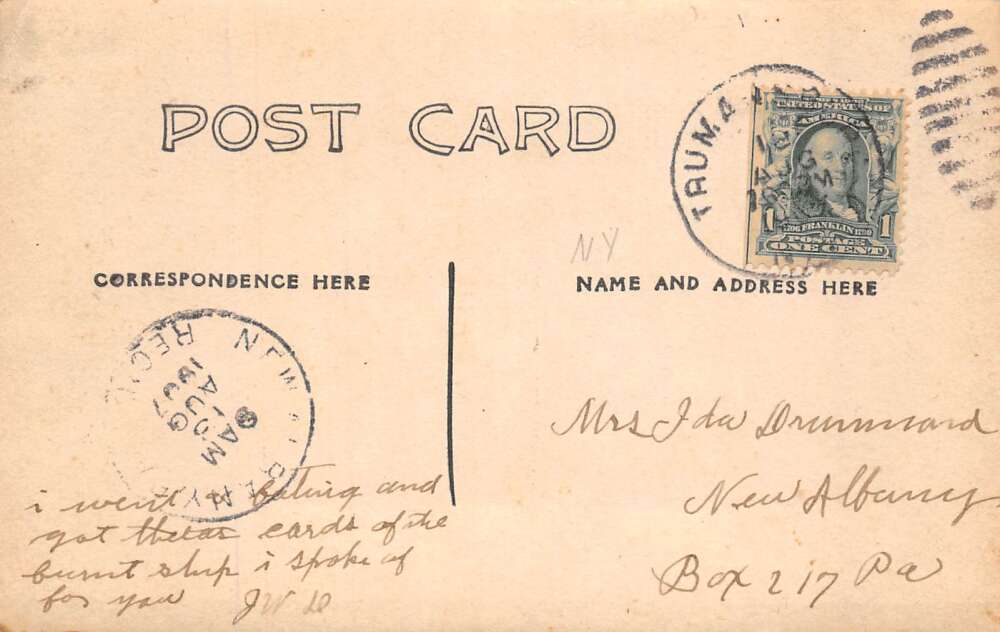 POST CARD
TRUMA
UNITED STATES OF
AMERICA
FRANKLIN
POSTAGE
1 ONE CENT 1
NY
CORRESPONDENCE HERE
NAME AND ADDRESS HERE
NEW
REC'D
8 AM
10
AUG
1907
i went bating and
got theas cards of the
burnt ship i spoke of
for you JW D
Mrs Ida Drummond
New Albany
Box 217 Pa